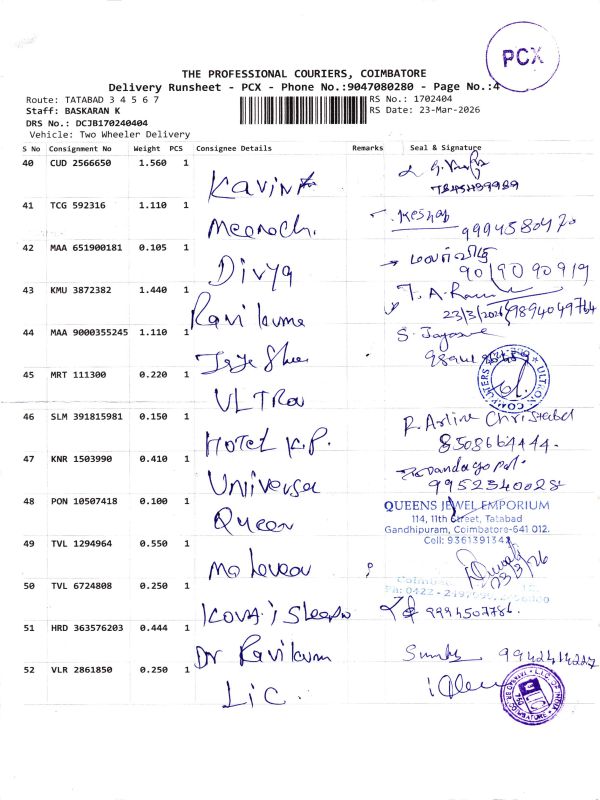 PCX
THE PROFESSIONAL COURIERS, COIMBATORE
Delivery Runsheet - PCX - Phone No.:9047080280 - Page No.:4
Route: TATABAD 3 4 5 6 7
RS No.: 1702404
Staff: BASKARAN K
RS Date: 23-Mar-2026
DRS No.: DCJB170240404
Vehicle: Two Wheeler Delivery
S No Consignment No Weight PCS Consignee Details Remarks Seal & Signature
40 CUD 2566650 1.560 1
Kavin
41 TCG 592316 1.110 1
Keshap
Meenach. 9994580470
42 MAA 651900181 0.105 1
Divya 9019090919
43 KMU 3872382 1.440 1
T. A. Ram
Ravi kuma 23/3/2026 9894049764
44 MAA 9000355245 1.110 1
S. Jayasree
45 MRT 111300 0.220 1
ULTRA
ULTRON COMPUTERS
46 SLM 391815981 0.150 1
R. Arline Christabel
Hotel K.P. 8508664444.
47 KNR 1503990 0.410 1
Universa 9952340028
48 PON 10507418 0.100 1
Queen
QUEENS JEWEL EMPORIUM
114, 11th Street, Tatabad
Gandhipuram, Coimbatore-641 012.
Cell: 9361391342
49 TVL 1294964 0.550 1
Mahaveer 23/3/26
50 TVL 6724808 0.250 1
Kovai 9994507786.
51 HRD 363576203 0.444 1
Dr Ravikum 9942414227
52 VLR 2861850 0.250 1
LIC.